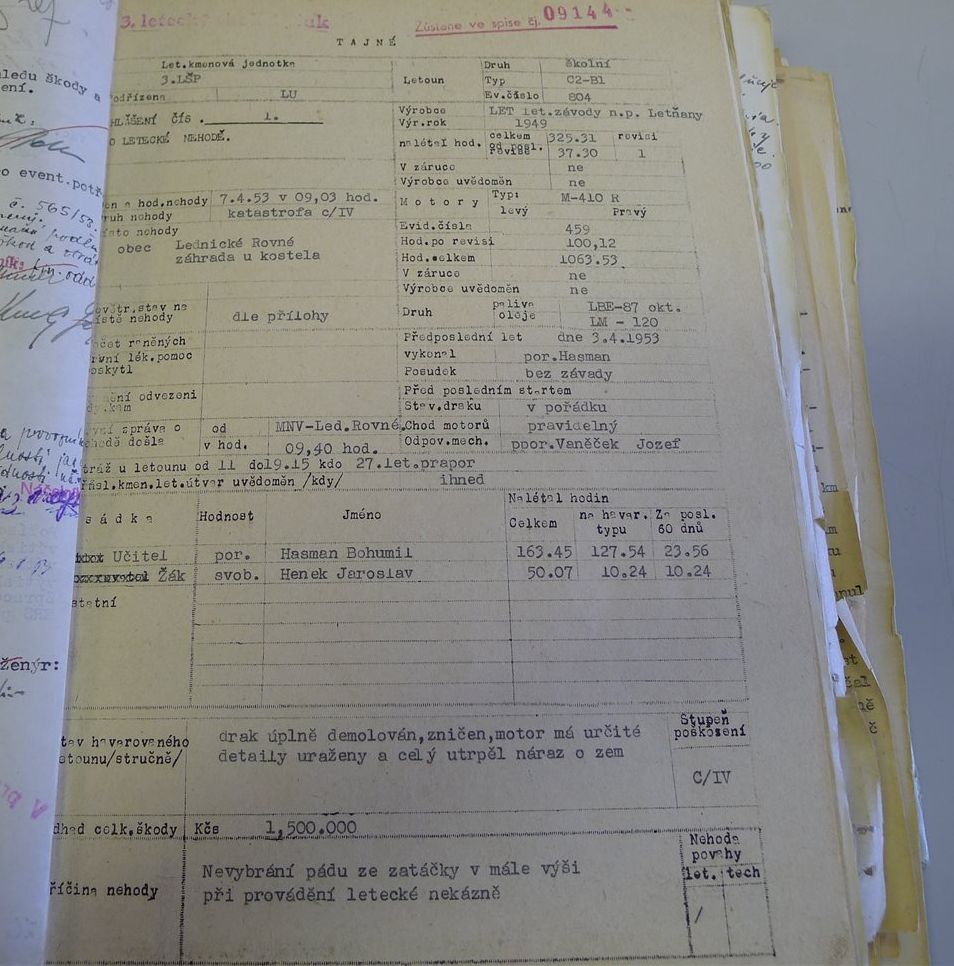 3. letecký
Zůstane ve spise čj. 09144
TAJNÉ
Let.kmenová jednotka
3.LŠP
odřízena LU
HLÁŠENÍ ČÍS . 1.
O LETECKÉ NEHODĚ.
Letoun
Druh školní
Typ C2-B1
Ev.číslo 804
Výrobce LET let.závody n.p. Letňany
Výr.rok 1949
nalétal hod. celkem 325.31 revisi
od posl. revise 37.30 1
V záruce ne
Výrobce uvědoměn ne
en a hod.nehody 7.4.53 v 09,03 hod.
ruh nehody katastrofa c/IV
ísto nehody
obec Lednické Rovné
záhrada u kostela
Motory Typ: M-410 R
levý Pravý
Evid.čísla 459
Hod.po revisi 100,12
Hod.celkem 1063.53
V záruce ne
Výrobce uvědoměn ne
ovětr.stav na
ístě nehody dle přílohy
Druh paliva LBE-87 okt.
oleje LM - 120
očet raněných
rvní lék.pomoc
oskytl
Předposlední let dne 3.4.1953
vykonal por.Hasman
Posudek bez závady
nění odvezeni
kam
Před posledním startem
Stav.draku v pořádku
vní zpráva o od MNV-Led.Rovné
ehodě došla v hod. 09,40 hod.
Chod motorů pravidelný
Odpov.mech. ppor.Vaněček Jozef
tráž u letounu od 11 do19.15 kdo 27.let.prapor
řísl.kmen.let.útvar uvědoměn /kdy/ ihned
sádka Hodnost Jméno
Nalétal hodin
Celkem na havar. typu Za posl. 60 dnů
Učitel por. Hasman Bohumil 163.45 127.54 23.56
Žák svob. Henek Jaroslav 50.07 10.24 10.24
statní
tav havarovaného
etounu/stručně/
drak úplně demolován,zničen,motor má určité
detaily uraženy a celý utrpěl náraz o zem
Stupeň
poškození
C/IV
dhad celk.škody Kčs 1,500.000
říčina nehody
Nevybrání pádu ze zatáčky v mále výši
při provádění letecké nekázně
Nehoda
povahy
let. tech
/